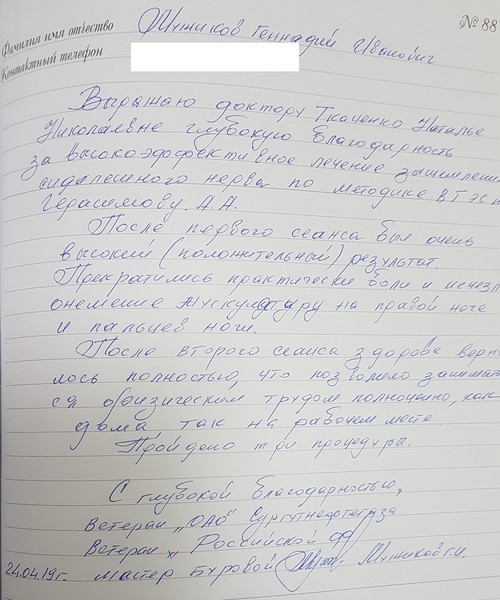 Фамилия имя отчество Мужиков Геннадий Иванович
№ 88
Контактный телефон
Выражаю доктору Ткаченко Наталье
Николаевне глубокую благодарность
за высокоэффективное лечение защемлени
седалешного нерва по методике ВТЭС п
Герасимову. А.А.
После первого сеанса был очень
высокий (положительный) результат.
Прекратились практически боли и исчезл
онемение мускулатуру на правой ноге
и пальцев ноги.
После второго сеанса здоровье верну
лось полностью, что позволило занимат
ся физическим трудом полноценно, как
дома, так на рабочем месте.
Пройдено три процедуры.
С глубокой благодарностью,
Ветеран „ОАО" Сургутнефтегаза
Ветеран Российской ФФ
24.04.19г. мастер Буровой Мужиков Г.И.